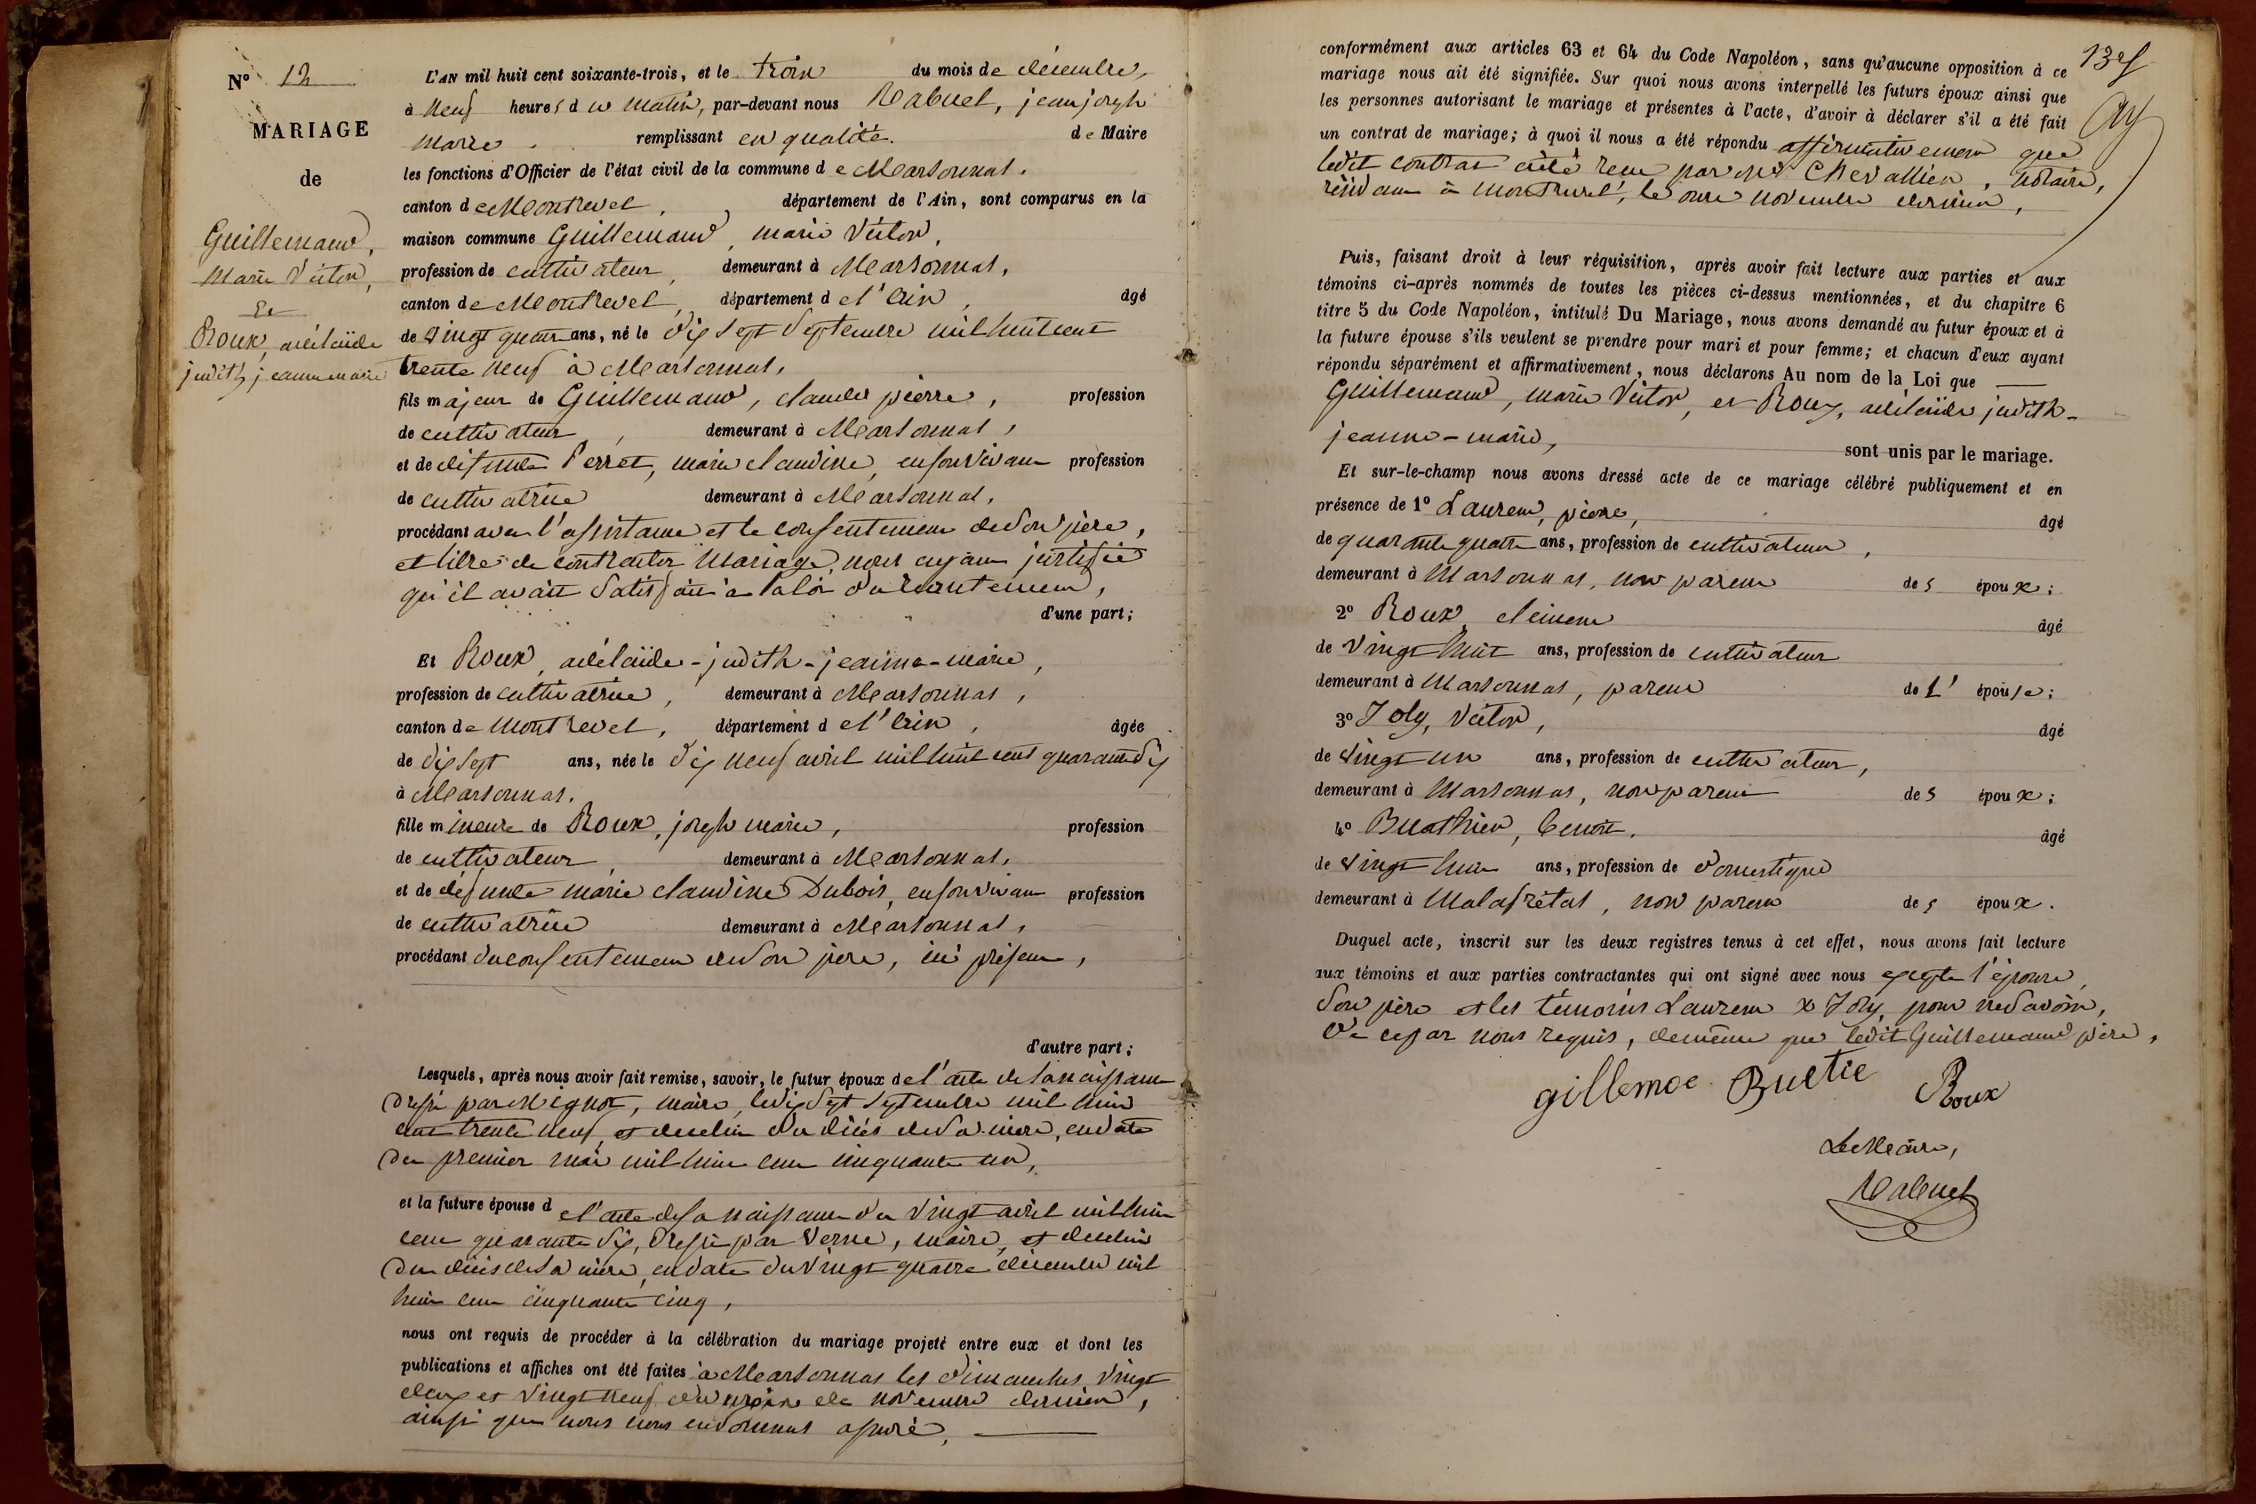 N° 12
MARIAGE
de
Guillemaud,
Marie Victor,
Et
Roux, adélaïde
judith, jeanne marie
L'AN mil huit cent soixante-trois, et le trois du mois de décembre,
à neuf heures du matin, par-devant nous Rabuel, jean joseph
marie remplissant en qualité de Maire
les fonctions d'Officier de l'état civil de la commune de Marsonnas,
canton de Montrevel, département de l'Ain, sont comparus en la
maison commune Guillemaud, marie Victor,
profession de cultivateur, demeurant à Marsonnas,
canton de Montrevel, département de l'Ain, âgé
de vingt quatre ans, né le dix sept Septembre mil huit cent
trente neuf à Marsonnas,
fils majeur de Guillemaud, claude pierre, profession
de cultivateur, demeurant à Marsonnas,
et de défunte Perret, marie claudine, en son vivant profession
de cultivatrice demeurant à Marsonnas,
procédant avec l'assistance et le consentement de son père,
et libre de contracter mariage, nous ayant justifié
qu'il avait satisfait à la loi du recrutement,
d'une part;
Et Roux, adélaïde-judith-jeanne-marie,
profession de cultivatrice, demeurant à Marsonnas,
canton de Montrevel, département de l'Ain, âgée
de dix sept ans, née le dix neuf avril mil huit cent quarante six
à Marsonnas.
fille mineure de Roux, joseph marie, profession
de cultivateur, demeurant à Marsonnas,
et de défunte marie claudine Dubois, en son vivant profession
de cultivatrice demeurant à Marsonnas,
procédant du consentement de son père, ici présent,
d'autre part;
Lesquels, après nous avoir fait remise, savoir, le futur époux de l'acte de sa naissance
dressé par Mignot, maire, le dix sept septembre mil huit
cent trente neuf, et de celui du décès de sa mère, en date
du premier mai mil huit cent cinquante un,
et la future épouse de l'acte de sa naissance du vingt avril mil huit
cent quarante six, dressé par Verne, maire, et de celui
du décès de sa mère, en date du vingt quatre décembre mil
huit cent cinquante cinq,
nous ont requis de procéder à la célébration du mariage projeté entre eux et dont les
publications et affiches ont été faites à Marsonnas les dimanches vingt
deux et vingt neuf du mois de novembre dernier,
ainsi que nous nous en sommes assuré,
conformément aux articles 63 et 64 du Code Napoléon, sans qu'aucune opposition à ce
mariage nous ait été signifiée. Sur quoi nous avons interpellé les futurs époux ainsi que
les personnes autorisant le mariage et présentes à l'acte, d'avoir à déclarer s'il a été fait
un contrat de mariage; à quoi il nous a été répondu affirmativement que
ledit contrat a été reçu par Me Chevallier, notaire,
résidant à Montrevel, le onze novembre dernier,
Puis, faisant droit à leur réquisition, après avoir fait lecture aux parties et aux
témoins ci-après nommés de toutes les pièces ci-dessus mentionnées, et du chapitre 6
titre 5 du Code Napoléon, intitulé Du Mariage, nous avons demandé au futur époux et à
la future épouse s'ils veulent se prendre pour mari et pour femme; et chacun d'eux ayant
répondu séparément et affirmativement, nous déclarons Au nom de la Loi que
Guillemaud, marie Victor, et Roux, adélaïde judith-
jeanne-marie, sont unis par le mariage.
Et sur-le-champ nous avons dressé acte de ce mariage célébré publiquement et en
présence de 1° Laurent, pierre, âgé
de quarante quatre ans, profession de cultivateur,
demeurant à Marsonnas, non parent des époux;
2° Roux clément âgé
de vingt huit ans, profession de cultivateur
demeurant à Marsonnas, parent de l'épouse;
3° Joly, Victor, âgé
de vingt un ans, profession de cultivateur,
demeurant à Marsonnas, non parent des époux;
4° Buathier, benoît. âgé
de vingt huit ans, profession de domestique
demeurant à Malafretas, non parent des époux.
Duquel acte, inscrit sur les deux registres tenus à cet effet, nous avons fait lecture
aux témoins et aux parties contractantes qui ont signé avec nous excepté l'épouse,
son père et les témoins Laurent & Joly, pour ne savoir,
de ce par nous requis, de même que ledit Guillemaud père,
gillemoe Buetie Roux
Le Maire,
Rabuel